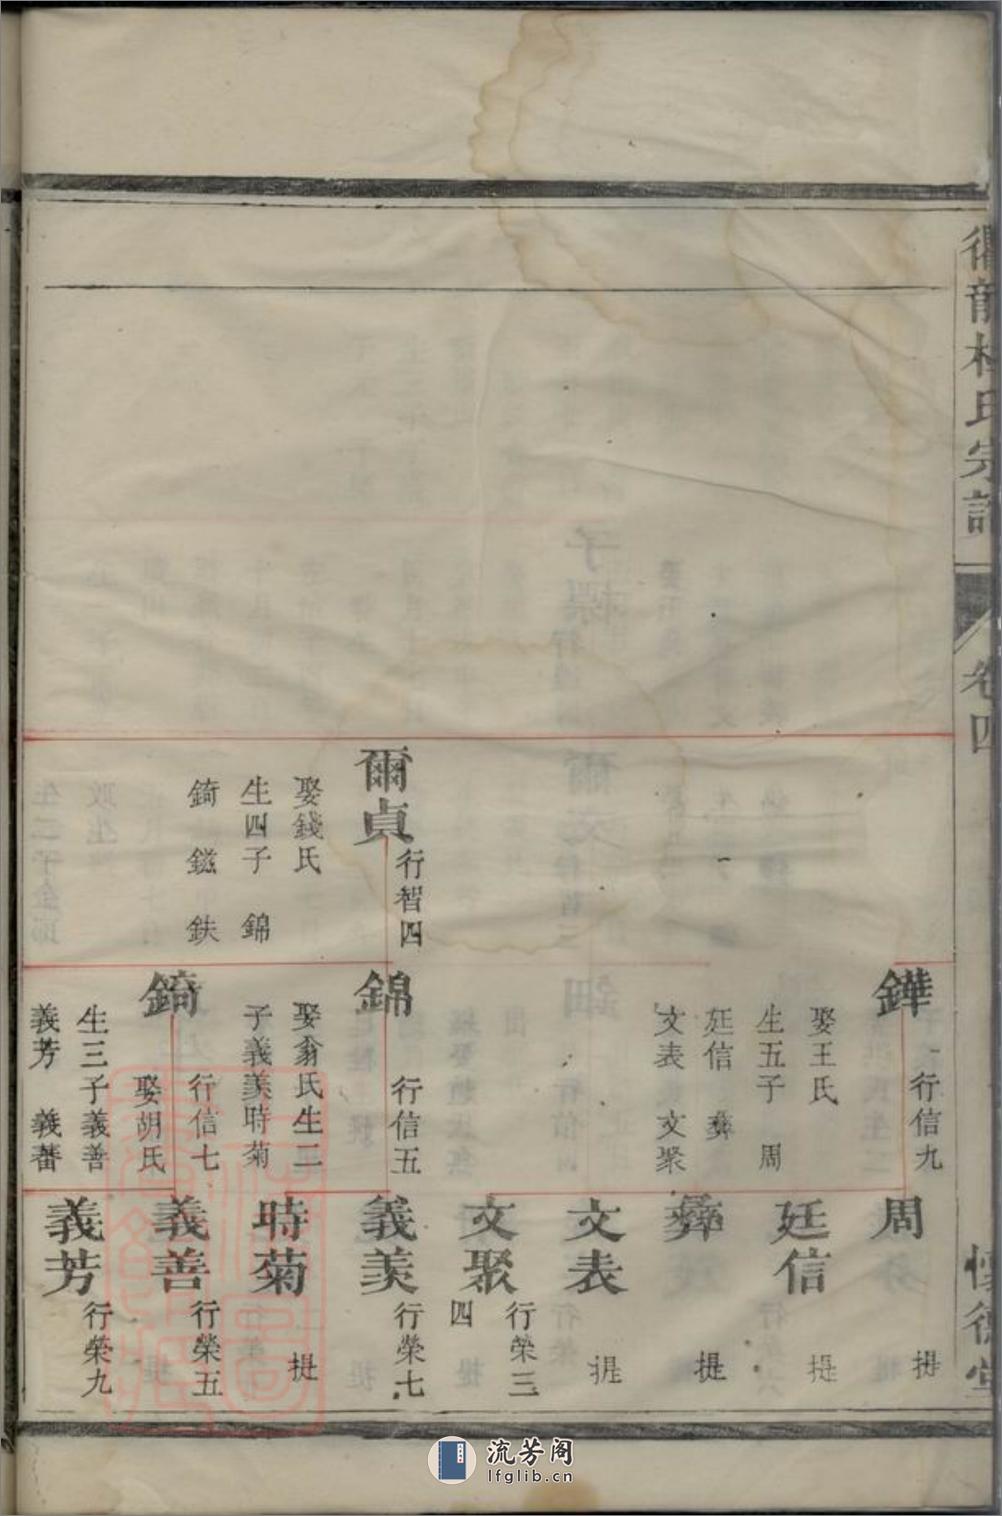 龍杜氏宗譜
卷四
懷德堂
爾貞
行智四
娶錢氏
生四子 錦
錡 鎡 鈇
鏵
行信九
娶王氏
生五子 周
廷信 彝
文表 文聚
錦
行信五
娶翁氏生二
子義羙時菊
錡
行信七
娶胡氏
生三子義善
義芳 義蕃
周
提
廷信
提
彝
提
文表
提
文聚
行榮三
四
義羙
行榮七
時菊
提
義善
行榮五
義芳
行榮九
流芳阁
lfglib.cn